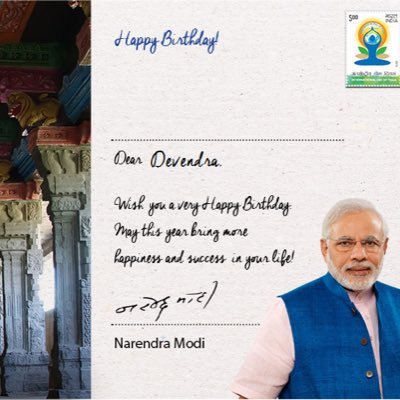 Happy Birthday!
5.00
भारत
INDIA
Dear Devendra.
Wish you a very Happy Birthday.
May this year bring more
happiness and success in your life!
नरेन्द्र मोदी
Narendra Modi